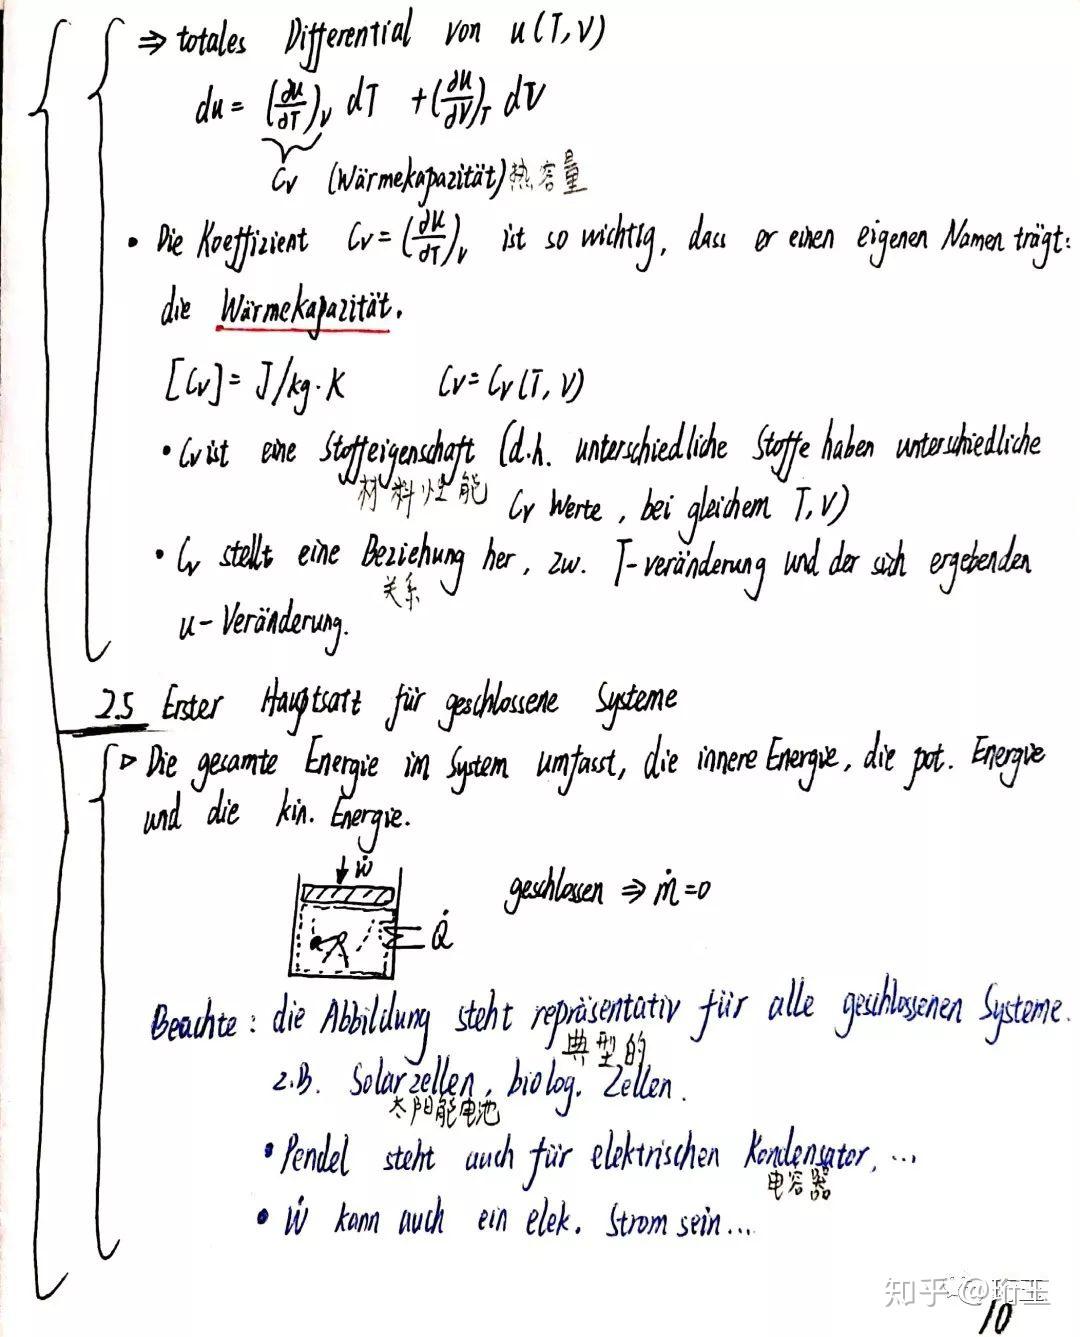 ⇒ totales Differential von u(T,V)
du = (∂u/∂T)_V dT + (∂u/∂V)_T dV
C_V (Wärmekapazität) 热容量
• Die Koeffizient C_V = (∂u/∂T)_V ist so wichtig, dass er einen eigenen Namen trägt:
die Wärmekapazität.
[C_V] = J/kg·K C_V = C_V(T,V)
• C_V ist eine Stoffeigenschaft (d.h. unterschiedliche Stoffe haben unterschiedliche
材料性能 C_V Werte, bei gleichem T,V)
• C_V stellt eine Beziehung her, zw. T-veränderung und der sich ergebenden
关系
u-Veränderung.
2.5 Erster Hauptsatz für geschlossene Systeme
▷ Die gesamte Energie im System umfasst, die innere Energie, die pot. Energie
und die kin. Energie.
↓Ẇ
geschlossen ⇒ ṁ=0
Q̇
Beachte: die Abbildung steht repräsentativ für alle geschlossenen Systeme.
典型的
z.B. Solarzellen, biolog. Zellen.
太阳能电池
• Pendel steht auch für elektrischen Kondensator, ...
电容器
• Ẇ kann auch ein elek. Strom sein...
知乎 @珩王
10